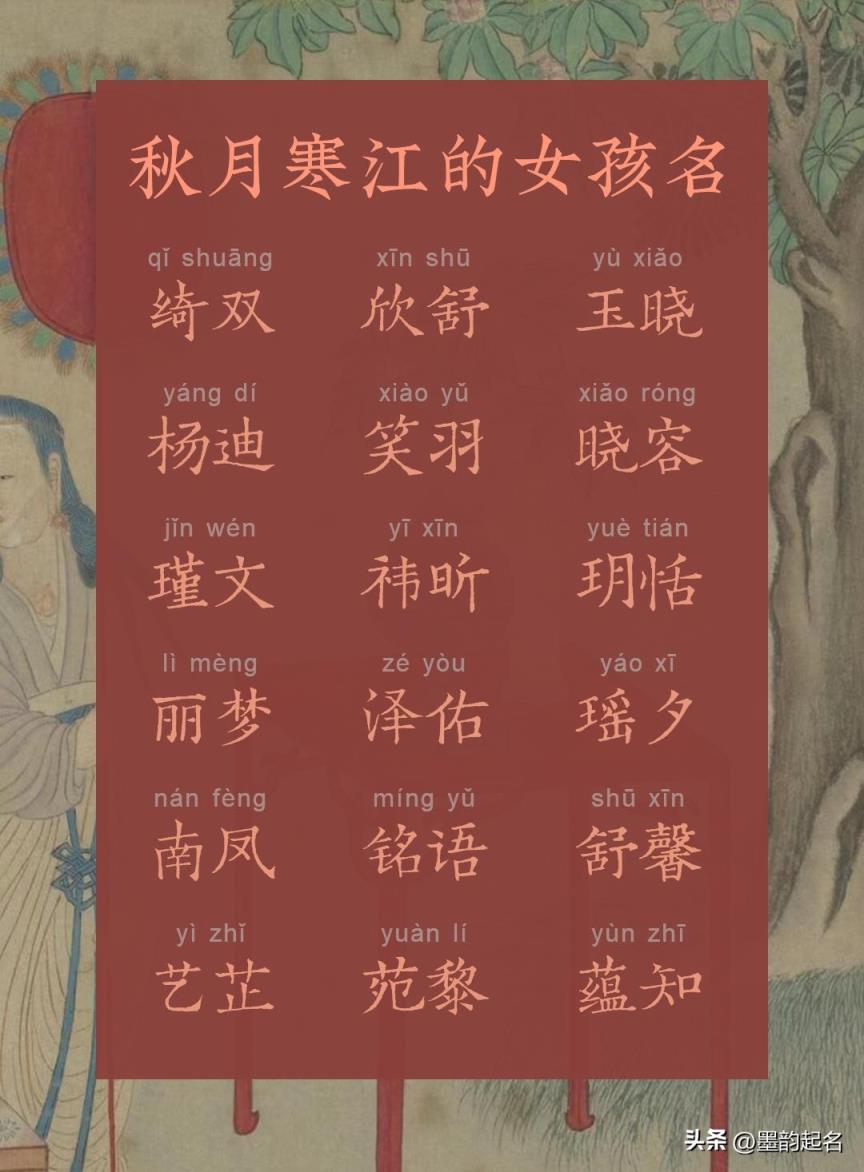 秋月寒江的女孩名
qǐ shuāng xīn shū yù xiǎo
绮双 欣舒 玉晓
yáng dí xiào yǔ xiǎo róng
杨迪 笑羽 晓容
jǐn wén yī xīn yuè tián
瑾文 祎昕 玥恬
lì mèng zé yòu yáo xī
丽梦 泽佑 瑶夕
nán fèng míng yǔ shū xīn
南凤 铭语 舒馨
yì zhǐ yuàn lí yùn zhī
艺芷 苑黎 蕴知
头条 @墨韵起名